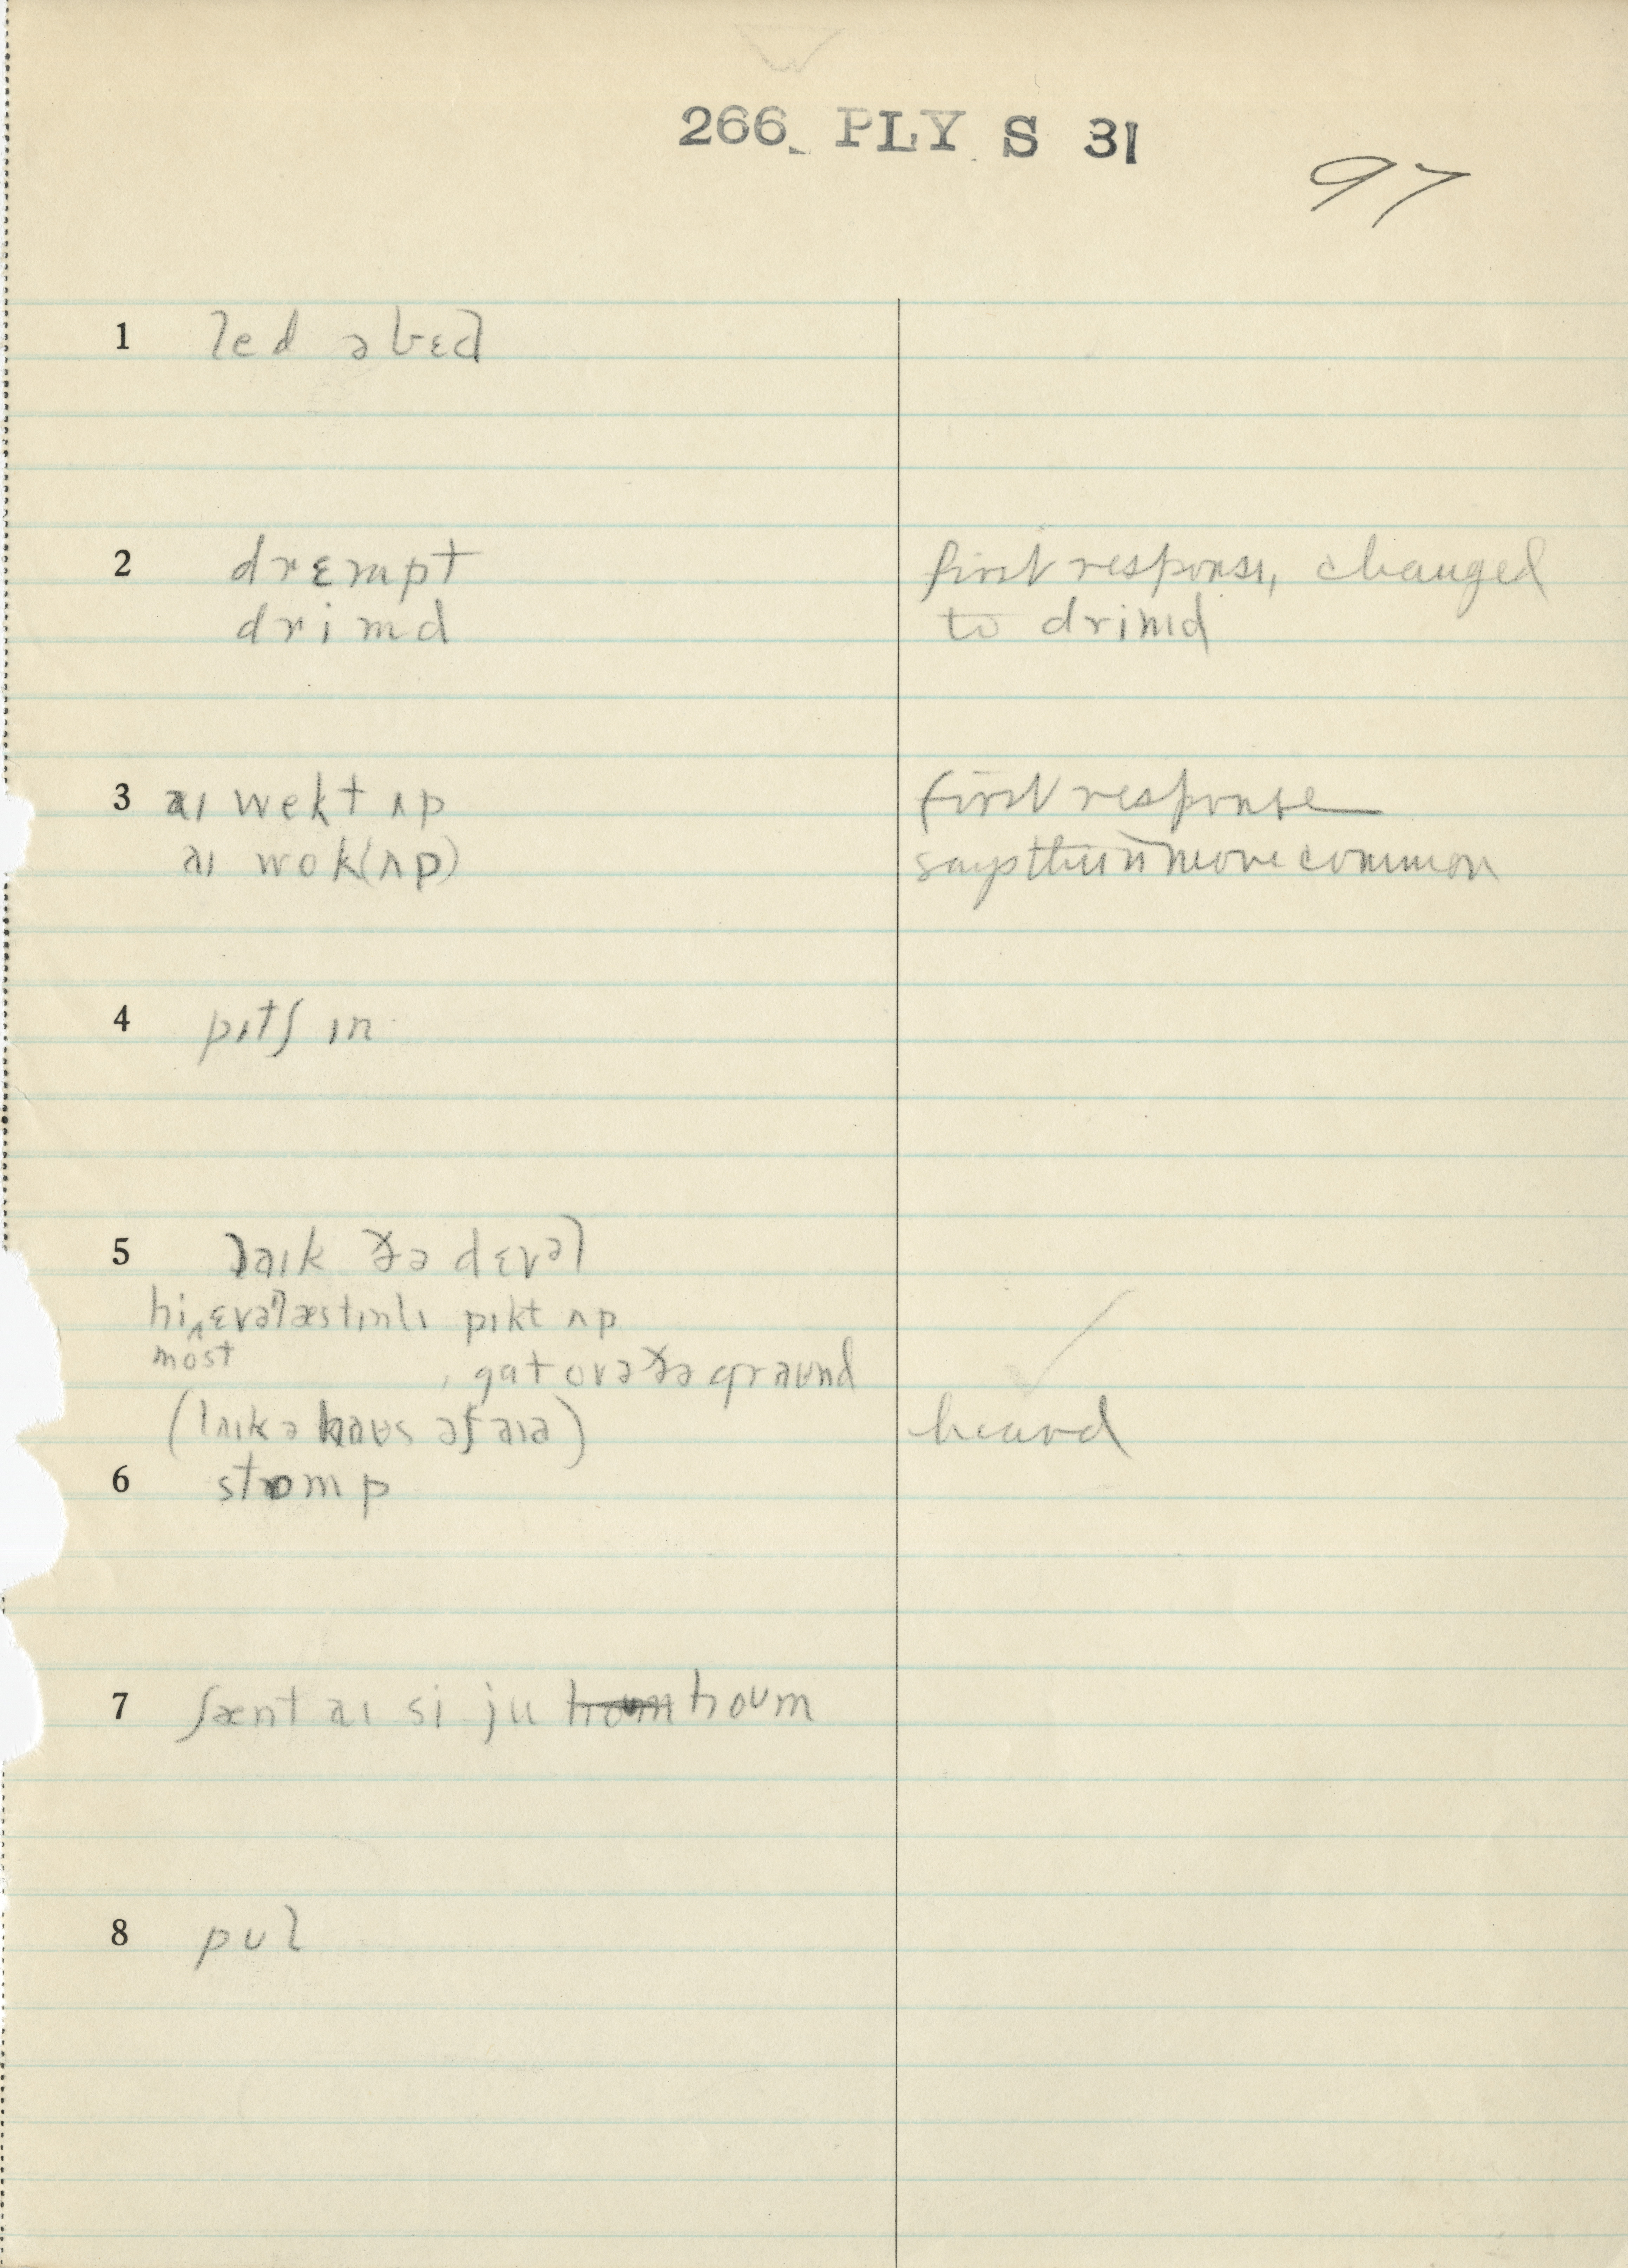 266 PLY S 31
97
1 led əbɛd
2 drɛmpt first response, changed
drimd to drimd
3 aɪ wekt ʌp first response
aɪ wok(ʌp) says this is more common
4 pɪtʃ ɪn
5 laɪk ðə dɛvəl
hi ‸ ɛvəlæstɪnlɪ pɪkt ʌp
most
, gat ovə ðə graʊnd
(laɪk ə haʊs afaɪə) heard
6 stɒmp
7 ʃænt aɪ si ju hoʊm
8 pʊl